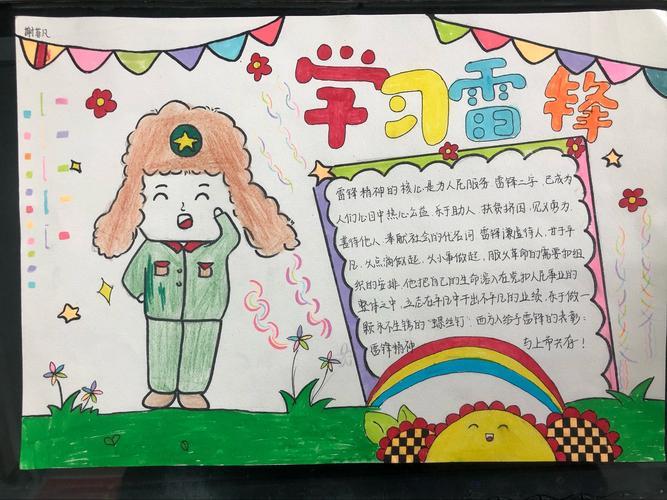 谢菲凡
学习雷锋
雷锋精神的核心是为人民服务.雷锋二字,已成为
人们心目中热心公益,乐于助人,扶贫挤困,见义勇为,
善待他人,奉献社会的代名词.雷锋谦虚待人,甘于平
凡,从点滴做起,从小事做起,服从革命的需要和组
织的安排,他把自己的生命溶入在党和人民事业的
整体之中,立志在平凡中干出不平凡的业绩,乐于做一
颗永不生锈的"螺丝钉".西方人给予雷锋的表彰:
雷锋精神 与上帝共存!